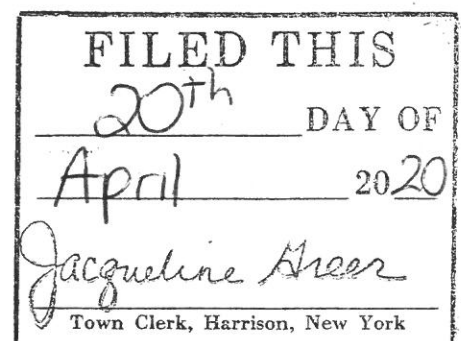 FILED THIS
20th DAY OF
April 2020
Jacqueline Greer
Town Clerk, Harrison, New York